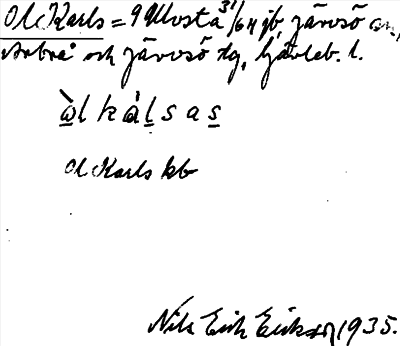 Ol Karls = 9 Ullvsta 3¹/64 jb Järvsö sn,
Arbrå och Järvsö tg, Gävleb. l.
ò̲l kȧl̲sas̲
Ol Karls kb
Nils Erik Eriksson 1935.